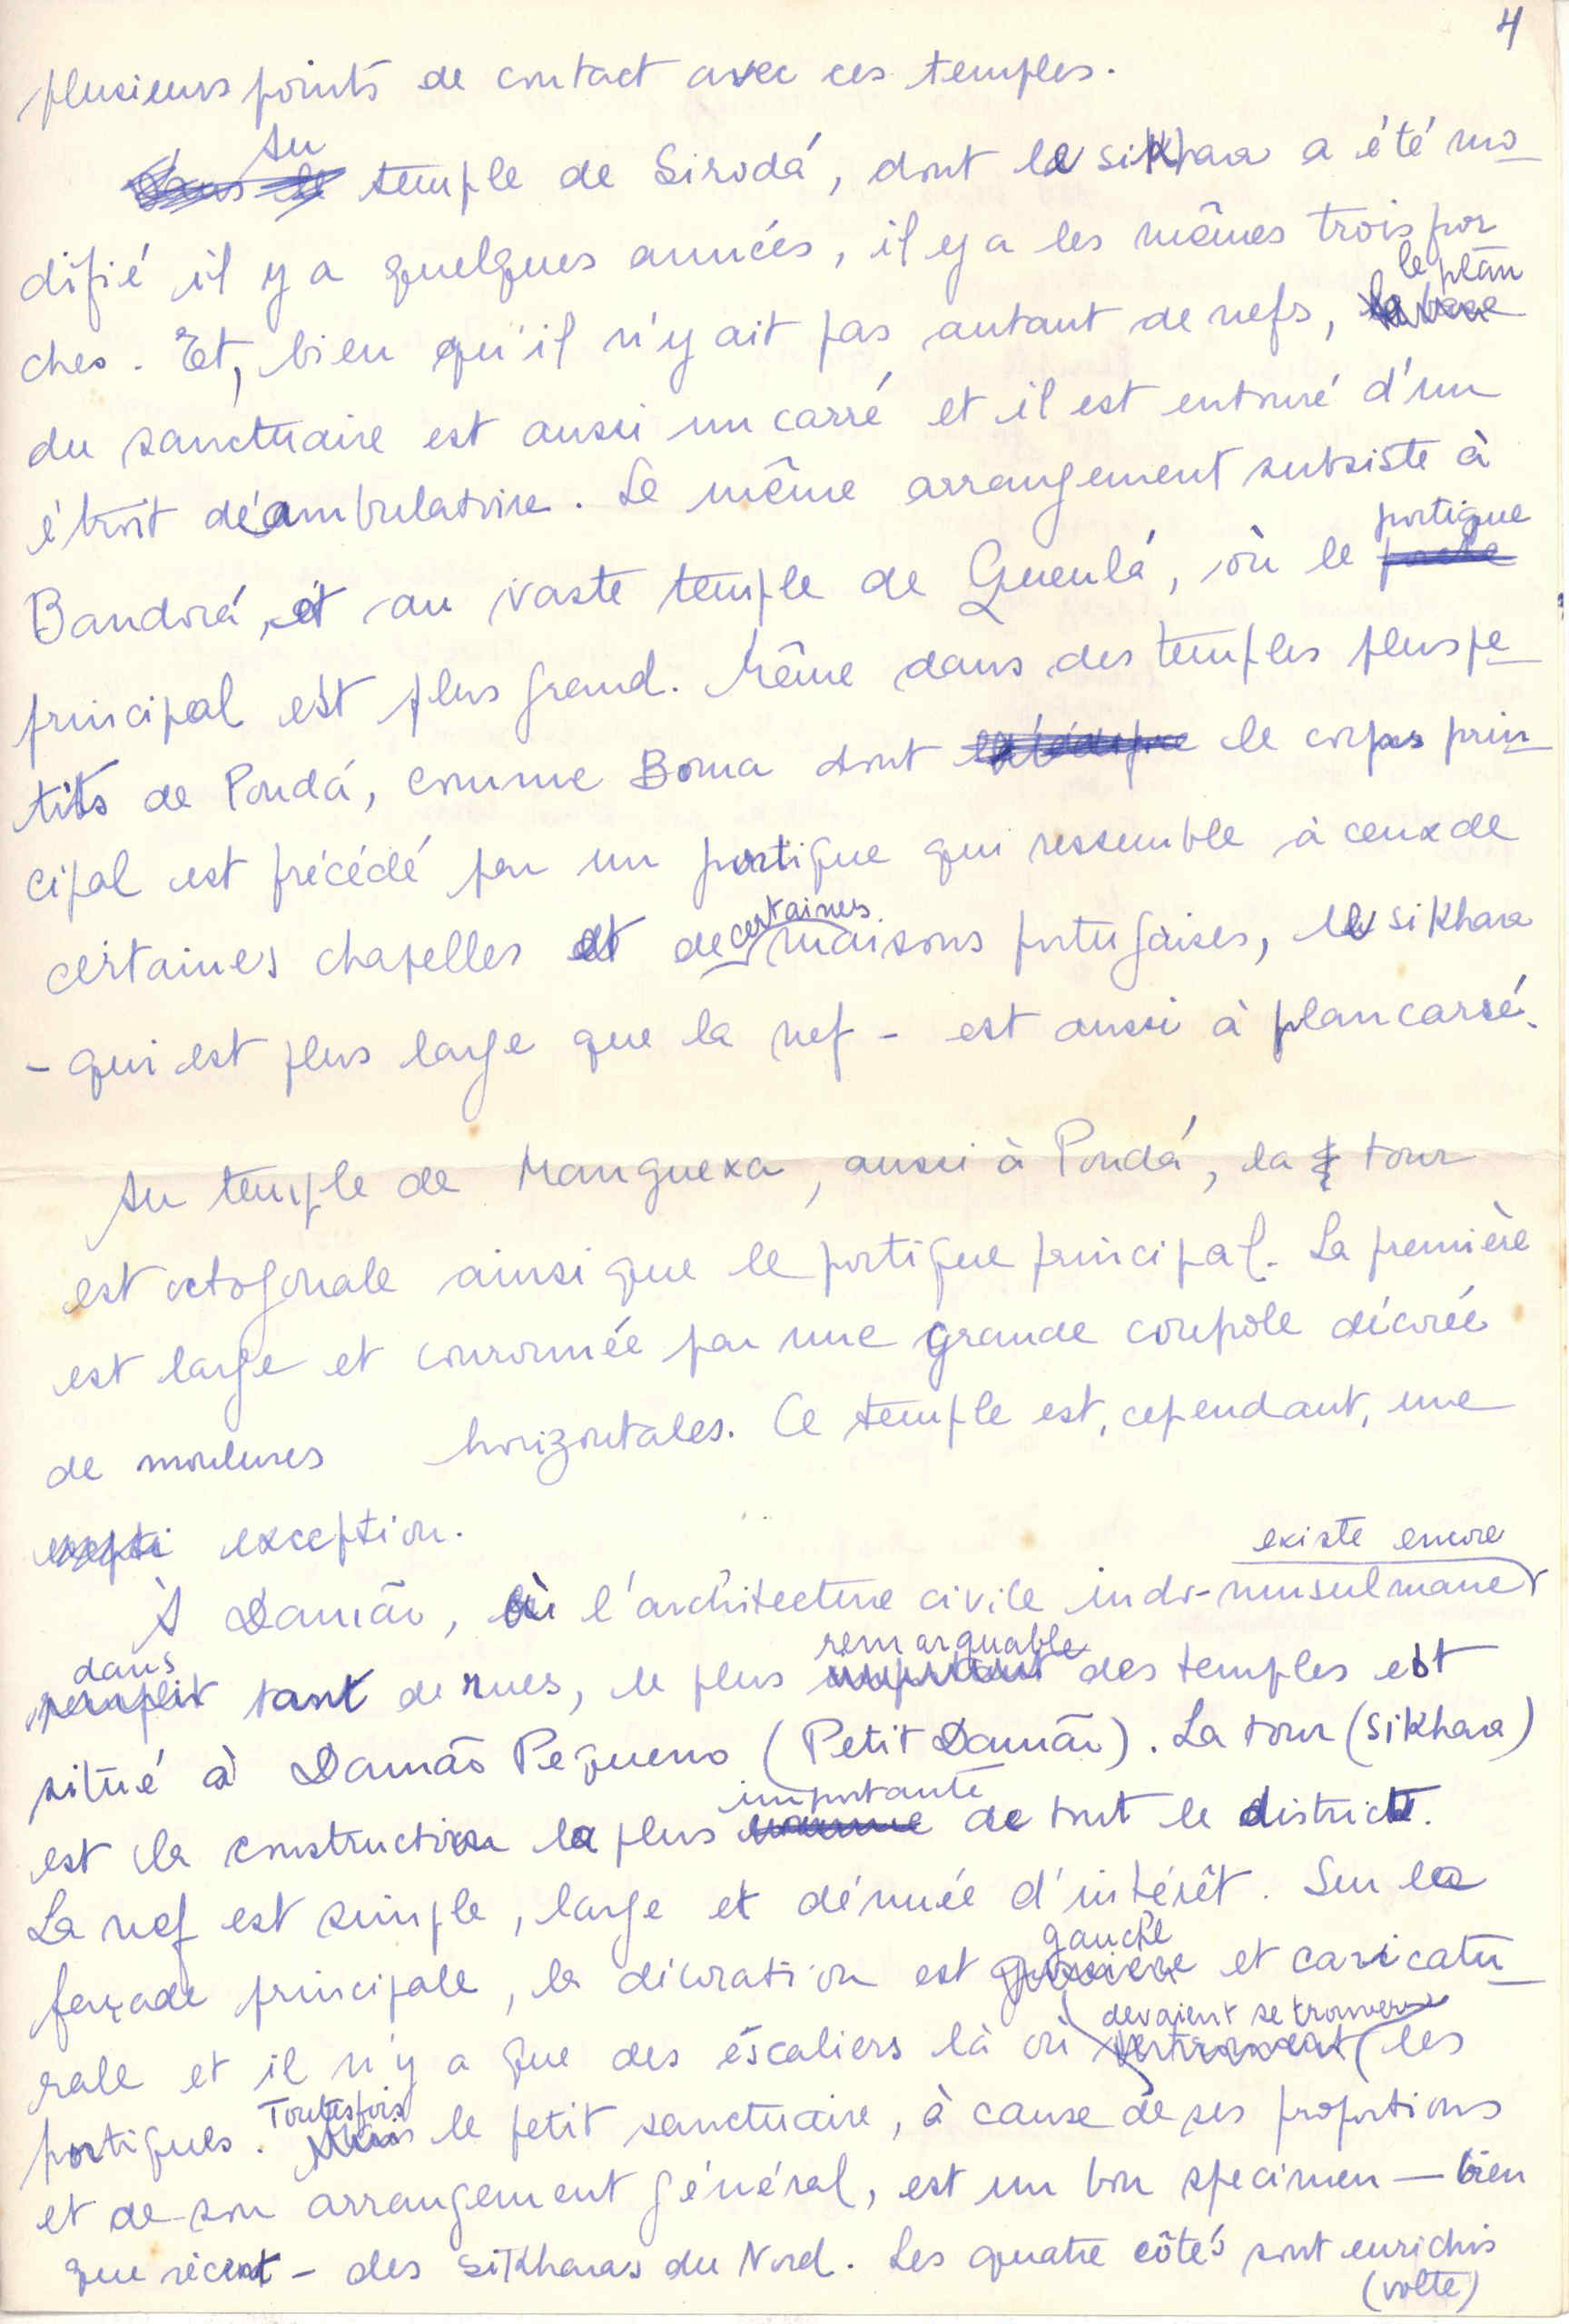 4
plusieurs points de contact avec ces temples.
Au
temple de Sirodá, dont le sikhara a été mo
difié il y a quelques années, il y a les mêmes trois por
le plan
ches. Et, bien qu'il n'y ait pas autant de nefs, la base
du sanctuaire est aussi un carré et il est entouré d'un
étroit déambulatoire. Le même arrangement subsiste à
portique
Bandorá, et au vaste temple de Queulá, où le porche
principal est plus grand. Même dans des temples plus pe
tits de Pondá, comme Boma dont le corps prin
cipal est précédé par un portique qui ressemble à ceux de
certaines
certaines chapelles et de maisons portugaises, le sikhara
- qui est plus large que la nef - est aussi à plan carré.
Au temple de Manguexa, aussi à Pondá, la tour
est octogonale ainsi que le portique principal. La première
est large et couronnée par une grande coupole décorée
de moulures horizontales. Ce temple est, cependant, une
exception.
existe encore
À Damão, où l'architecture civile indo-musulmane
dans remarquable
remplit tant de rues, le plus important des temples est
situé à Damão Pequeno (Petit Damão). La tour (sikhara)
importante
est la construction la plus de tout le district.
La nef est simple, large et dénuée d'intérêt. Sur la
gauche
façade principale, la décoration est grossière et caricatu
devaient se trouver
rale et il n'y a que des éscaliers là où se trouvent les
Toutesfois
portiques. Mais le petit sanctuaire, à cause de ses proportions
et de son arrangement général, est un bon specimen — bien
que récent - des sikharas du Nord. Les quatre côtés sont enrichis
(volte)